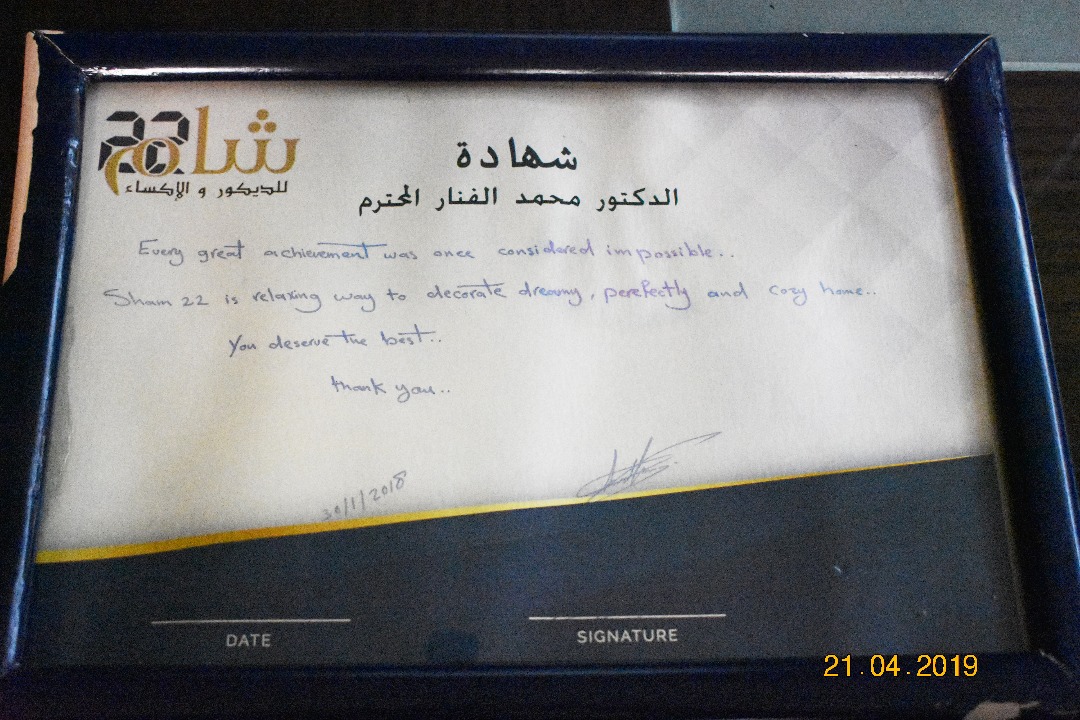 شام 22
للديكور و الإكساء
شهادة
الدكتور محمد الفنار المحترم
Every great achievement was once considered impossible..
Sham 22 is relaxing way to decorate dreamy, perefectly and cozy home..
You deserve the best..
thank you..
30/1/2018
DATE
SIGNATURE
21.04.2019